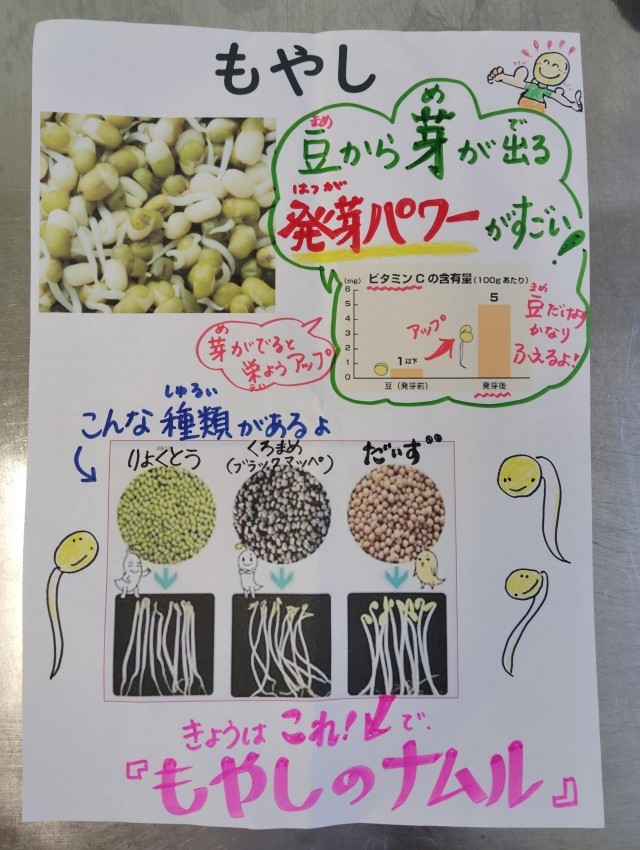 もやし
まめ
め
で
豆から芽が出る
はつが
発芽パワーがすごい!
(mg)
ビタミンCの含有量(100gあたり)
6
5
4
3
2
1
0
1以下
5
アップ
豆(発芽前)
発芽後
まめ
豆だけより
かなり
ふえるよ!
め
芽がでると
栄ようアップ
えい
しゅるい
こんな種類があるよ
りょくとう
くろまめ
(ブラックマッペ)
だいず
きょうはこれ!で、
『もやしのナムル』